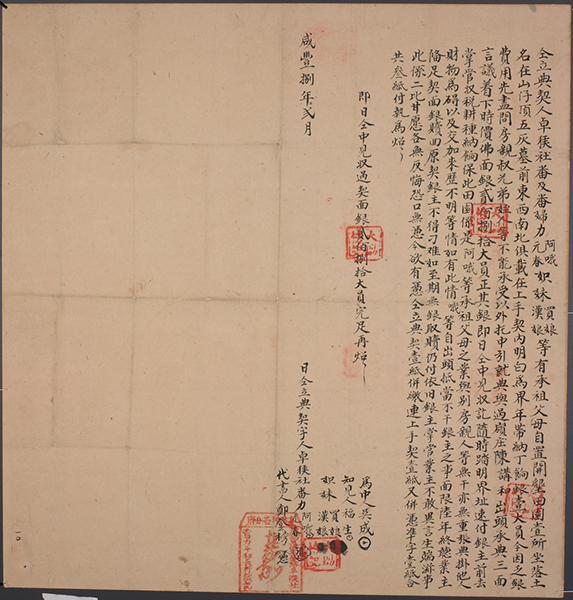 仝立典契人卓猴社番及番婦力阿哦元春姒妹買娘漢娘等有承祖父母自置開墾田園壹所坐落土
名在山仔頂五灰墓前東西南北俱載在上手契內明白為界年帶納丁餉銀壹大員今因乏銀
費用先盡問房親叔兄弟姪人等不能承受以外托中引就典與過嶺庄陳講和出頭承典三面
言議着下時價佛面銀貳佰捌拾大員正其銀即日仝中見收訖隨時踏明界址速付銀主前去
掌管收稅耕種納餉保此田園係是阿哦等承祖父母之業與別房親人等無干亦無重張典掛他人
財物為碍以及交加來歷不明等情如有此情哦等自出頭抵當不干銀主之事面限陸年終聽業主
備足契面銀贖回原契銀主不得刁難如至期無銀取贖仍付依旧銀主掌管業主不敢異言生端滋事
此係二比甘愿各無反悔恐口無憑今欲有憑仝立典契壹紙併繳連上手契壹紙又併憑準字壹紙合
共叁紙付執為炤
即日仝中見收過契面銀貳佰捌拾大員完足再炤
咸豐捌年弍月
日仝立典契字人卓猴社番力阿哦元春
姒妹買娘漢娘
知見人福生
為中吳成
代書人鄭